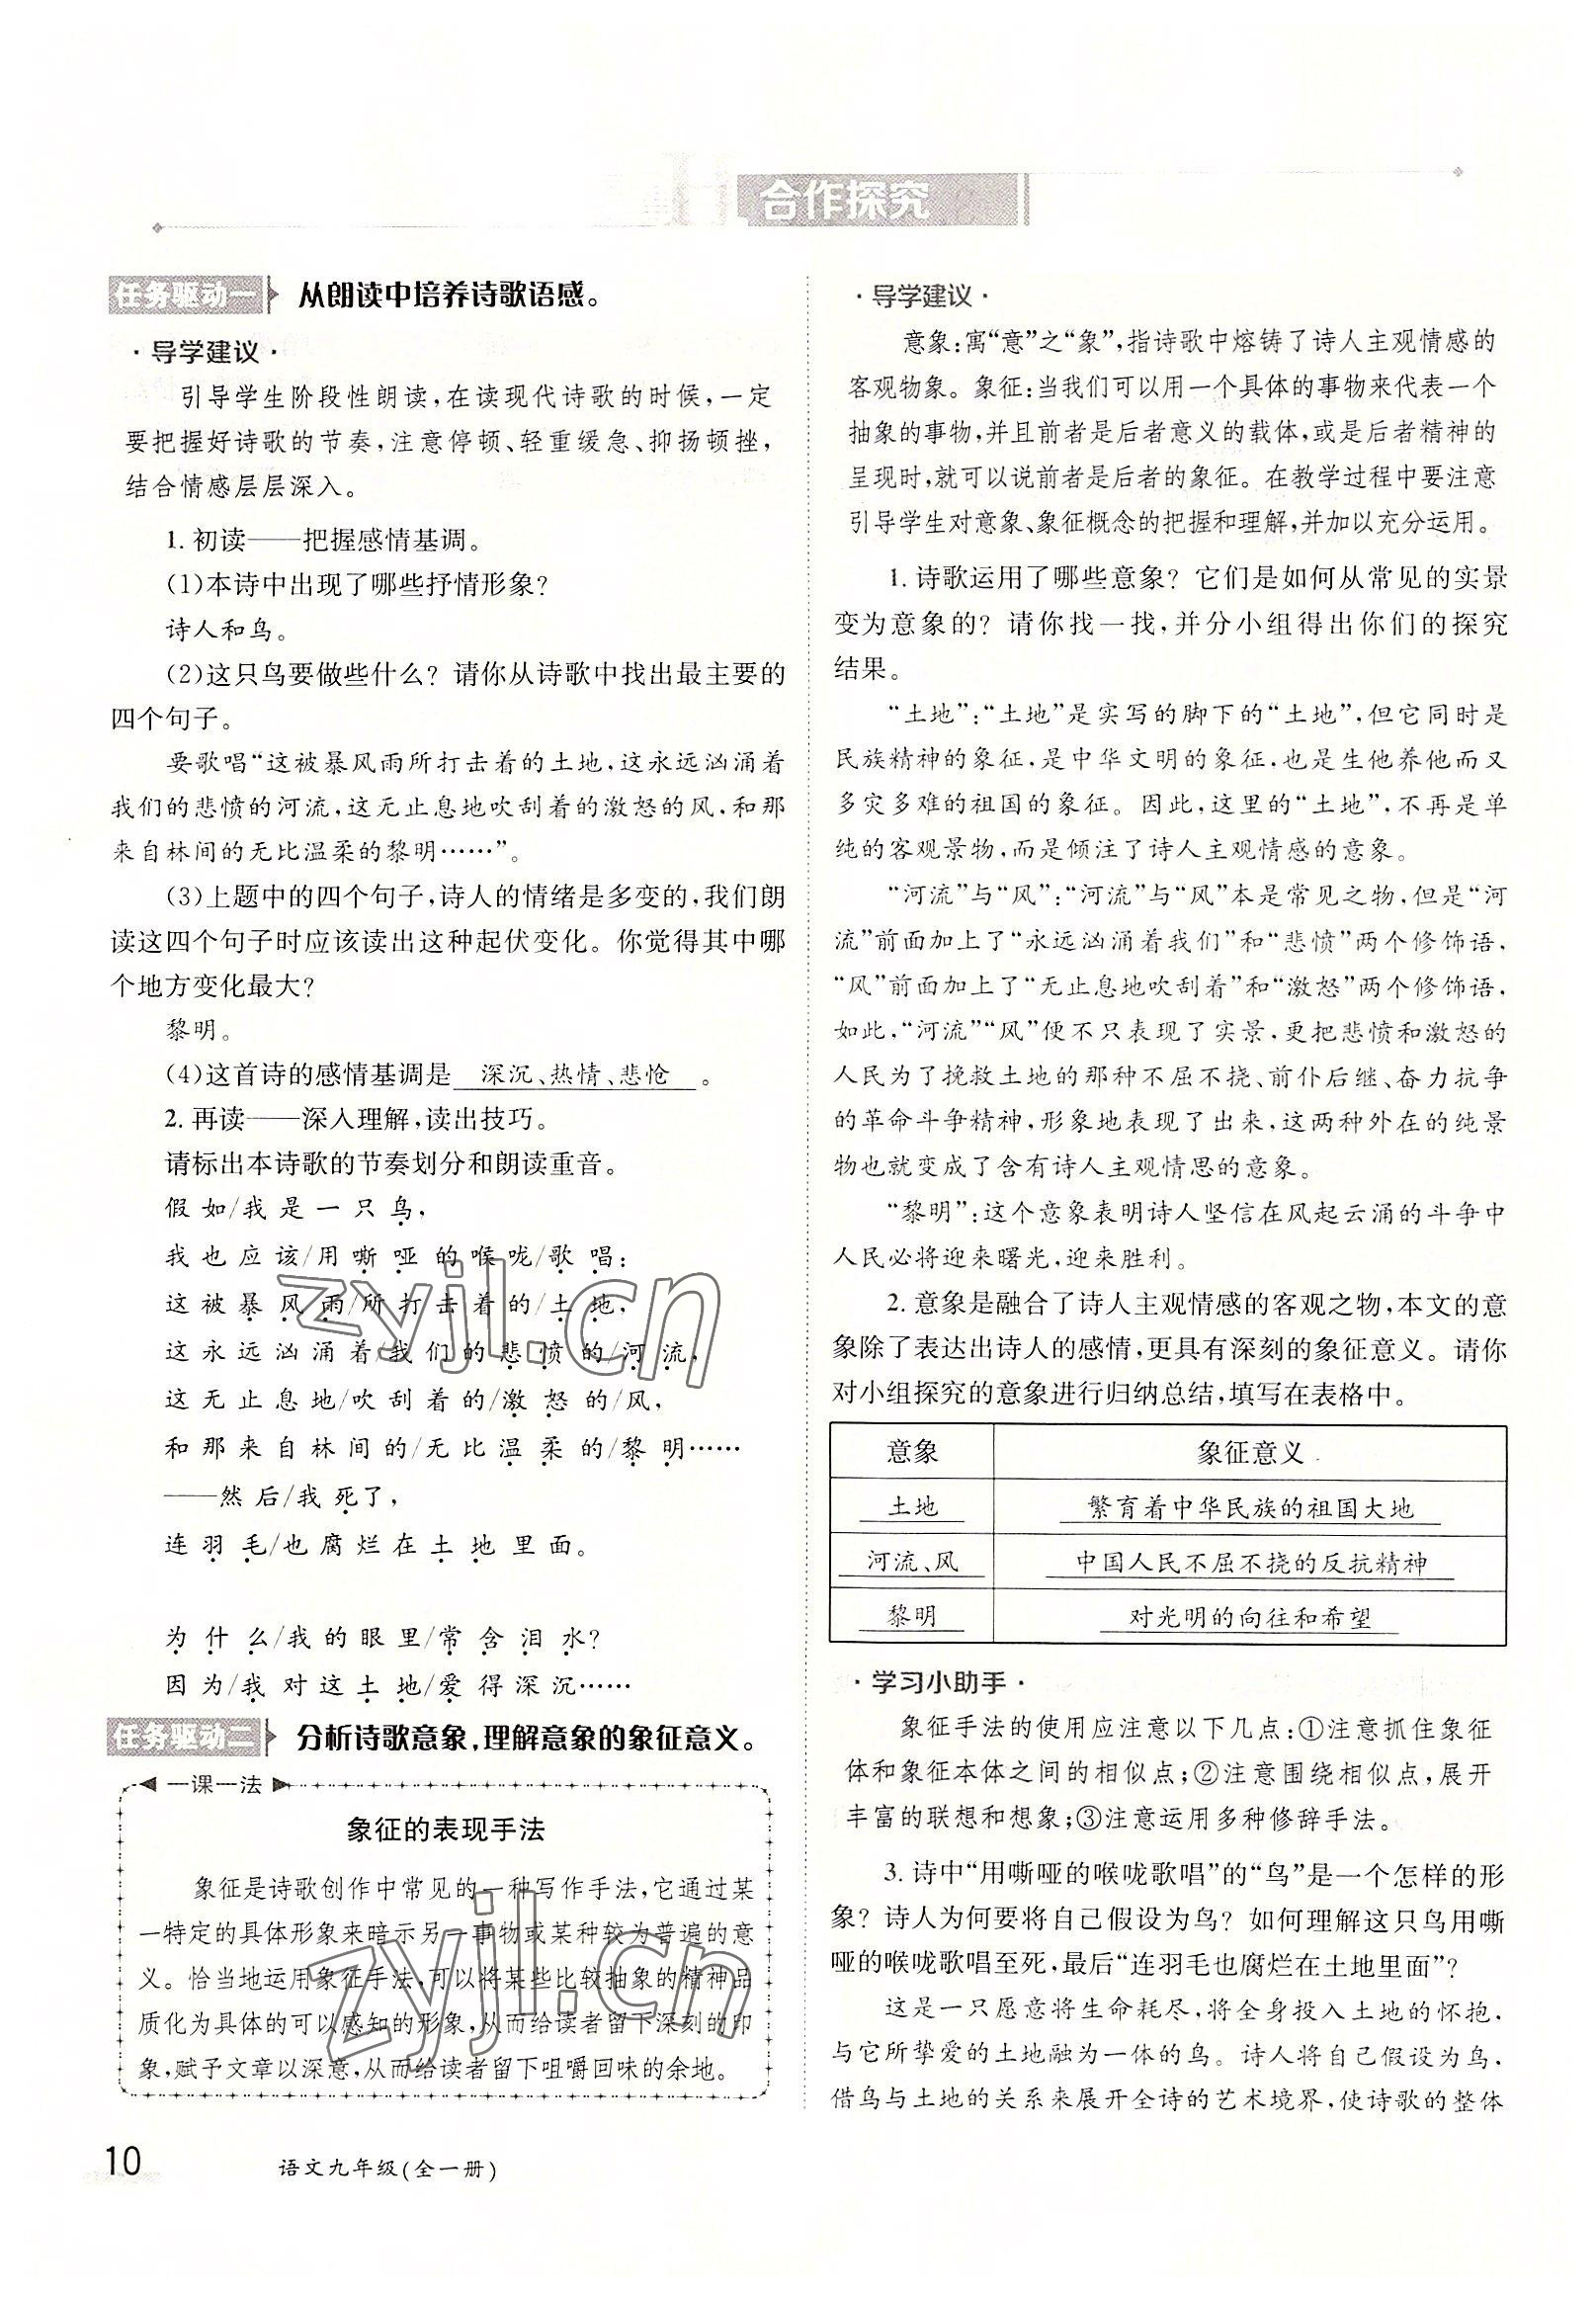 合作探究
任务驱动一 从朗读中培养诗歌语感。
·导学建议·
引导学生阶段性朗读,在读现代诗歌的时候,一定
要把握好诗歌的节奏,注意停顿、轻重缓急、抑扬顿挫,
结合情感层层深入。
1. 初读——把握感情基调。
(1)本诗中出现了哪些抒情形象?
诗人和鸟。
(2)这只鸟要做些什么? 请你从诗歌中找出最主要的
四个句子。
要歌唱“这被暴风雨所打击着的土地,这永远汹涌着
我们的悲愤的河流,这无止息地吹刮着的激怒的风,和那
来自林间的无比温柔的黎明……”。
(3)上题中的四个句子,诗人的情绪是多变的,我们朗
读这四个句子时应该读出这种起伏变化。你觉得其中哪
个地方变化最大?
黎明。
(4)这首诗的感情基调是 深沉、热情、悲怆 。
2. 再读——深入理解,读出技巧。
请标出本诗歌的节奏划分和朗读重音。
假如/我是一只鸟,
我也应该/用嘶哑的喉咙/歌唱:
这被暴风雨/所打击着的/土地,
这永远汹涌着/我们的悲愤的/河流,
这无止息地/吹刮着的/激怒的/风,
和那来自林间的/无比温柔的/黎明……
——然后/我死了,
连羽毛/也腐烂在土地里面。
为什么/我的眼里/常含泪水?
因为/我对这土地/爱得深沉……
任务驱动二 分析诗歌意象,理解意象的象征意义。
一课一法
象征的表现手法
象征是诗歌创作中常见的一种写作手法,它通过某
一特定的具体形象来暗示另一事物或某种较为普遍的意
义。恰当地运用象征手法,可以将某些比较抽象的精神品
质化为具体的可以感知的形象,从而给读者留下深刻的印
象,赋予文章以深意,从而给读者留下咀嚼回味的余地。
10 语文九年级(全一册)
·导学建议·
意象:寓“意”之“象”,指诗歌中熔铸了诗人主观情感的
客观物象。象征:当我们可以用一个具体的事物来代表一个
抽象的事物,并且前者是后者意义的载体,或是后者精神的
呈现时,就可以说前者是后者的象征。在教学过程中要注意
引导学生对意象、象征概念的把握和理解,并加以充分运用。
1. 诗歌运用了哪些意象? 它们是如何从常见的实景
变为意象的? 请你找一找,并分小组得出你们的探究
结果。
“土地”:“土地”是实写的脚下的“土地”,但它同时是
民族精神的象征,是中华文明的象征,也是生他养他而又
多灾多难的祖国的象征。因此,这里的“土地”,不再是单
纯的客观景物,而是倾注了诗人主观情感的意象。
“河流”与“风”:“河流”与“风”本是常见之物,但是“河
流”前面加上了“永远汹涌着我们”和“悲愤”两个修饰语,
“风”前面加上了“无止息地吹刮着”和“激怒”两个修饰语,
如此,“河流”“风”便不只表现了实景,更把悲愤和激怒的
人民为了挽救土地的那种不屈不挠、前仆后继、奋力抗争
的革命斗争精神,形象地表现了出来,这两种外在的纯景
物也就变成了含有诗人主观情思的意象。
“黎明”:这个意象表明诗人坚信在风起云涌的斗争中
人民必将迎来曙光,迎来胜利。
2. 意象是融合了诗人主观情感的客观之物,本文的意
象除了表达出诗人的感情,更具有深刻的象征意义。请你
对小组探究的意象进行归纳总结,填写在表格中。
意象 象征意义
土地 繁育着中华民族的祖国大地
河流、风 中国人民不屈不挠的反抗精神
黎明 对光明的向往和希望
·学习小助手·
象征手法的使用应注意以下几点:①注意抓住象征
体和象征本体之间的相似点;②注意围绕相似点,展开
丰富的联想和想象;③注意运用多种修辞手法。
3. 诗中“用嘶哑的喉咙歌唱”的“鸟”是一个怎样的形
象? 诗人为何要将自己假设为鸟? 如何理解这只鸟用嘶
哑的喉咙歌唱至死,最后“连羽毛也腐烂在土地里面”?
这是一只愿意将生命耗尽,将全身投入土地的怀抱,
与它所挚爱的土地融为一体的鸟。诗人将自己假设为鸟,
借鸟与土地的关系来展开全诗的艺术境界,使诗歌的整体
zyjl.cn
zyjl.cn